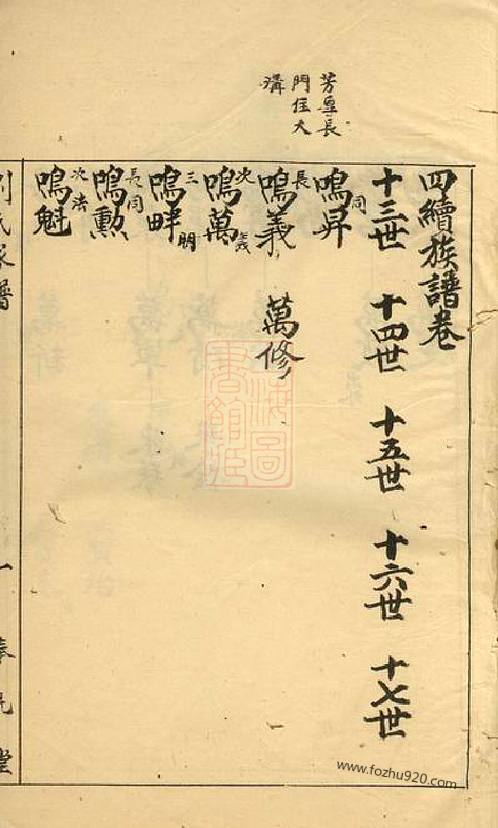 芳□長
門住大
溝
四續族譜卷
十三世 十四世 十五世 十六世 十七世
同 鳴昇
長 鳴義 萬修
次 鳴萬
三 鳴畔
長同 鳴勲
次法 鳴魁
劉氏家譜 一
上海圖書館藏
www.fozhu920.com